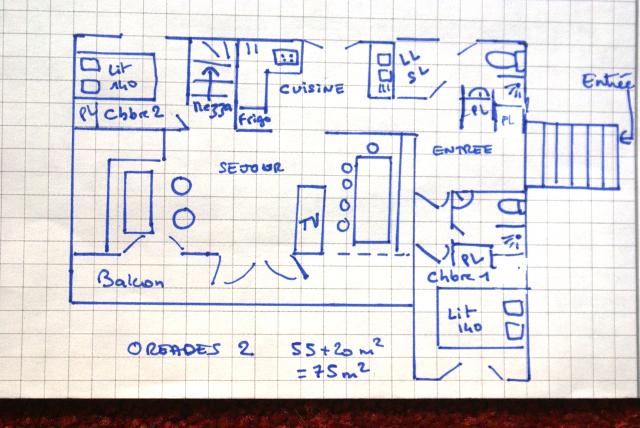 Lit
140
PL
Chbre 2
Mezza
Frigo
CUISINE
LL
SL
PL
PL
Entrée
ENTREE
SEJOUR
TV
Balcon
PL
Chbre 1
Lit
140
OREADES 2
55+20 m²
= 75 m²